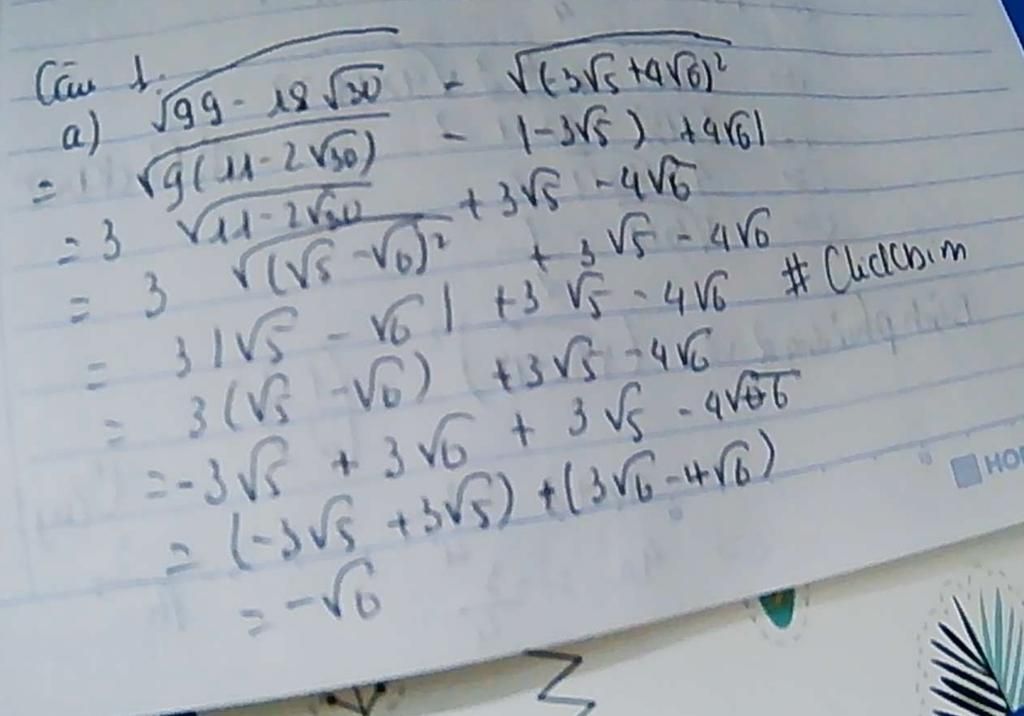 Câu 1.
a) √(99 - 18√30) - √((-3√5 + 4√6)²)
= √(9(11 - 2√30)) - |-3√5) + 4√6|
= 3 √(11 - 2√30) + 3√5 - 4√6
= 3 √((√5 - √6)²) + 3√5 - 4√6
= 3|√5 - √6| + 3√5 - 4√6 #
= 3(√5 - √6) + 3√5 - 4√6
= -3√5 + 3√6 + 3√5 - 4√6
= (-3√5 + 3√5) + (3√6 - 4√6)
= -√6